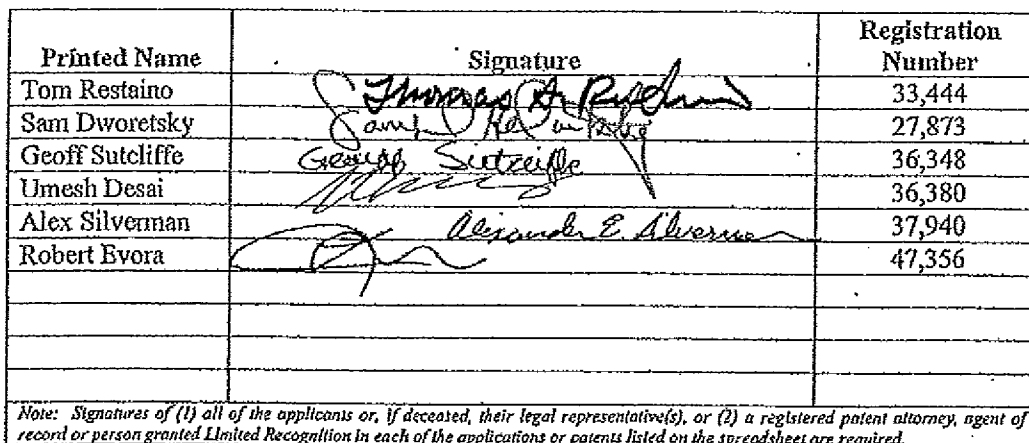 Printed Name Signature Registration Number
Tom Restaino Thomas A. Restaino 33,444
Sam Dworetsky 27,873
Geoff Sutcliffe Geoff Sutcliffe 36,348
Umesh Desai 36,380
Alex Silverman Alexander E. Silverman 37,940
Robert Evora 47,356
Note: Signatures of (1) all of the applicants or, if deceased, their legal representative(s), or (2) a registered patent attorney, agent of
record or person granted Limited Recognition in each of the applications or patents listed on the spreadsheet are required.